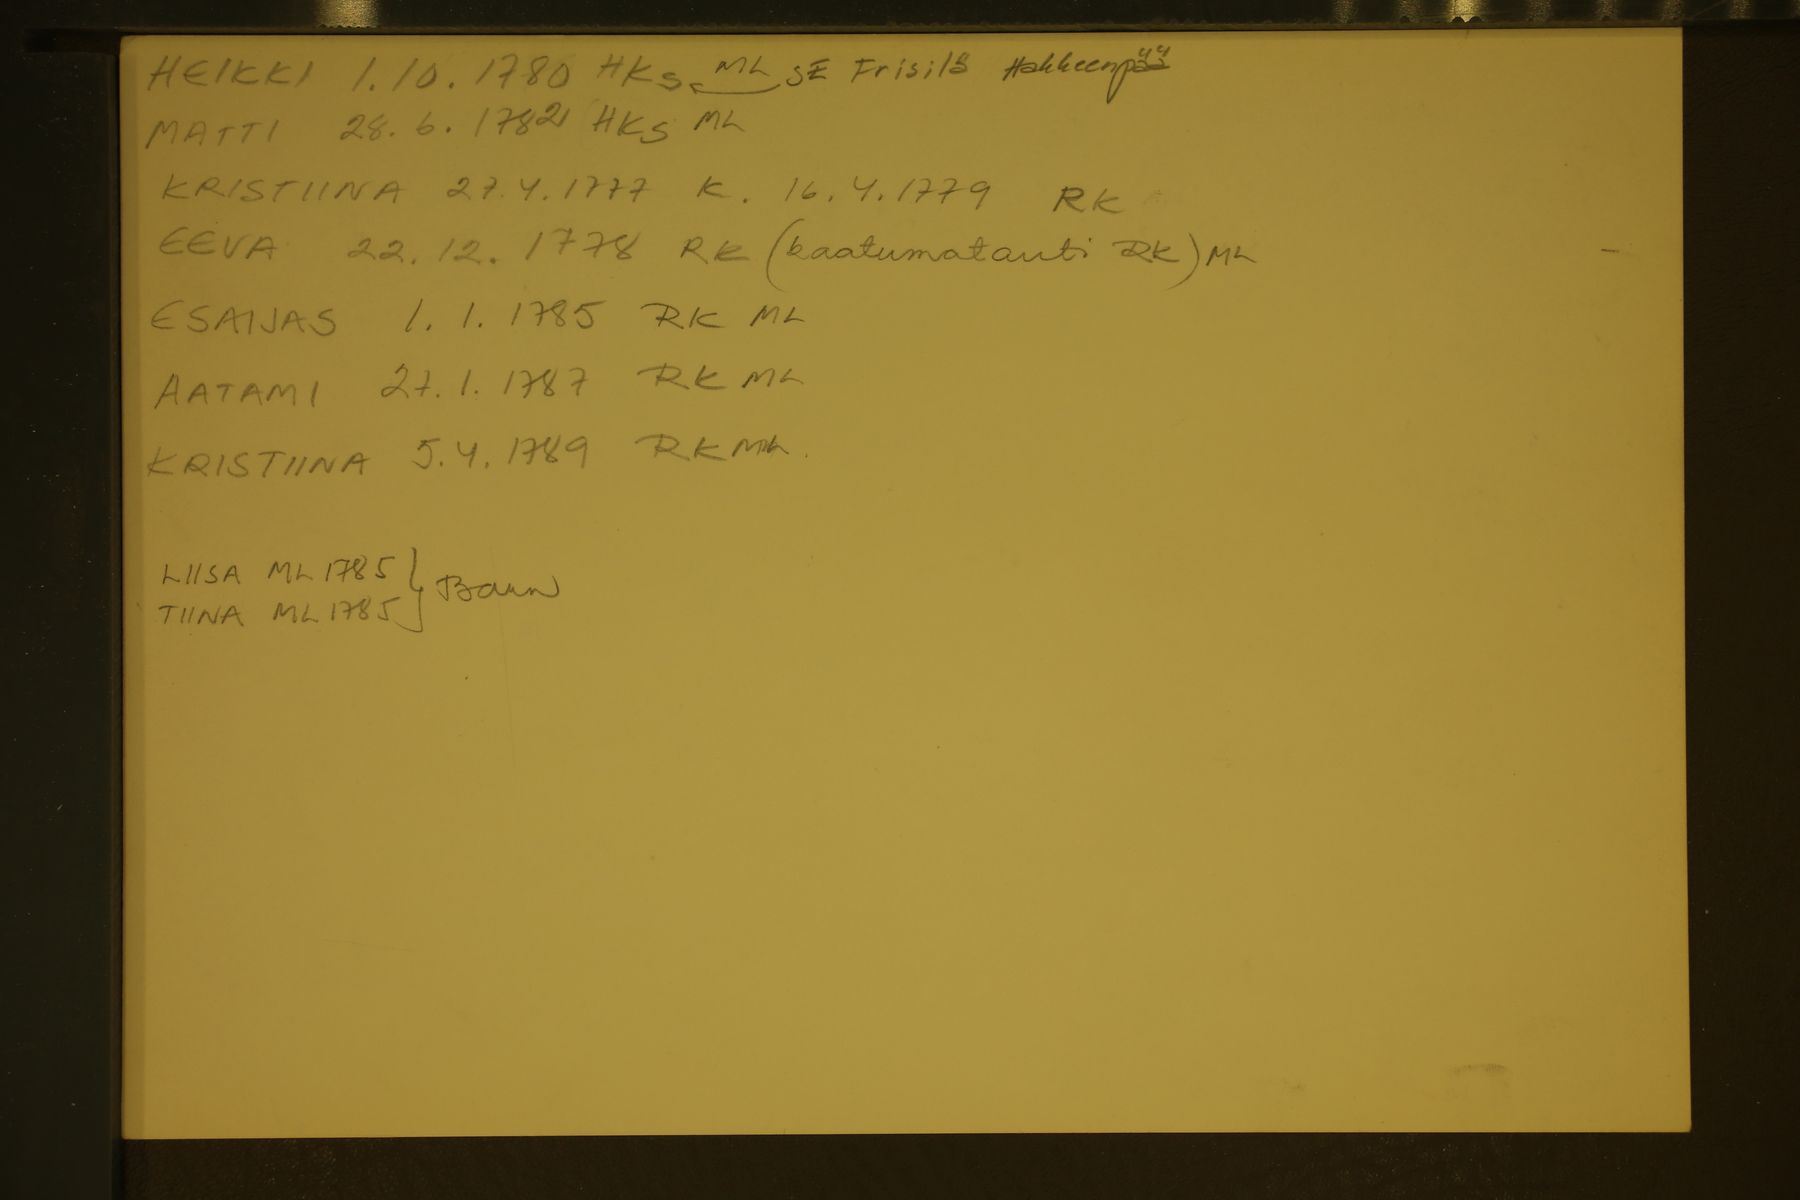 HEIKKI 1.10.1780 HKS ML SE Frisilä Hakkeenpää
MATTI 28.6.1782 HKS ML
KRISTIINA 27.4.1777 K. 16.4.1779 RK
EEVA 22.12.1778 RK (kaatumatauti RK) ML
ESAIJAS 1.1.1785 RK ML
AATAMI 27.1.1787 RK ML
KRISTIINA 5.4.1789 RK ML.
LIISA ML 1785
TIINA ML 1785 } Barn